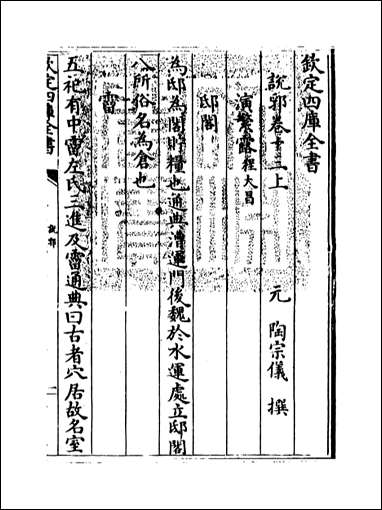 欽定四庫全書
說郛卷十二上
元 陶宗儀 撰
演繁露程大昌
邸閣
為邸為閣貯糧也通典漕運門後魏於水運處立邸閣
八所俗名為倉也
霤
五祀有中霤左氏三進及霤通典曰古者穴居故名室
欽定四庫全書
說郛